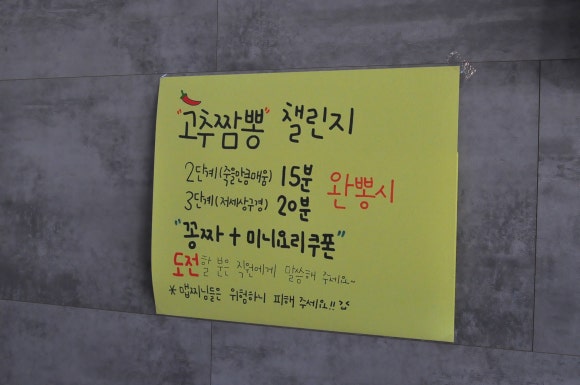 "고추짬뽕" 챌린지
2단계(죽을만큼매움) 15분
3단계(저세상구경) 20분 완뽕시
"꽁짜 + 미니요리쿠폰"
도전할 분은 직원에게 말씀해 주세요~
* 맵찌님들은 위험하니 피해 주세요!!